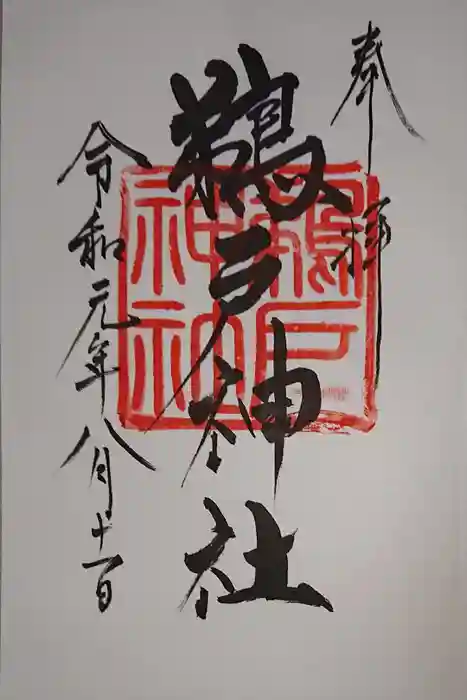 奉拝
鵜戸神社
令和元年八月十一日
鵜戸
神社